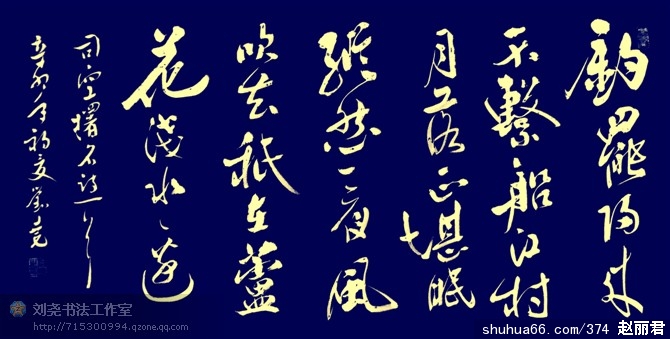 釣罷歸来
不繫船江村
月落正堪眠
縱然一夜風
吹去秖在蘆
花淺水邊
司空曙名詩一首
辛卯年初夏劉堯
刘尧书法工作室
http://715300994.qzone.qq.com
shuhua66.com/374 赵丽君